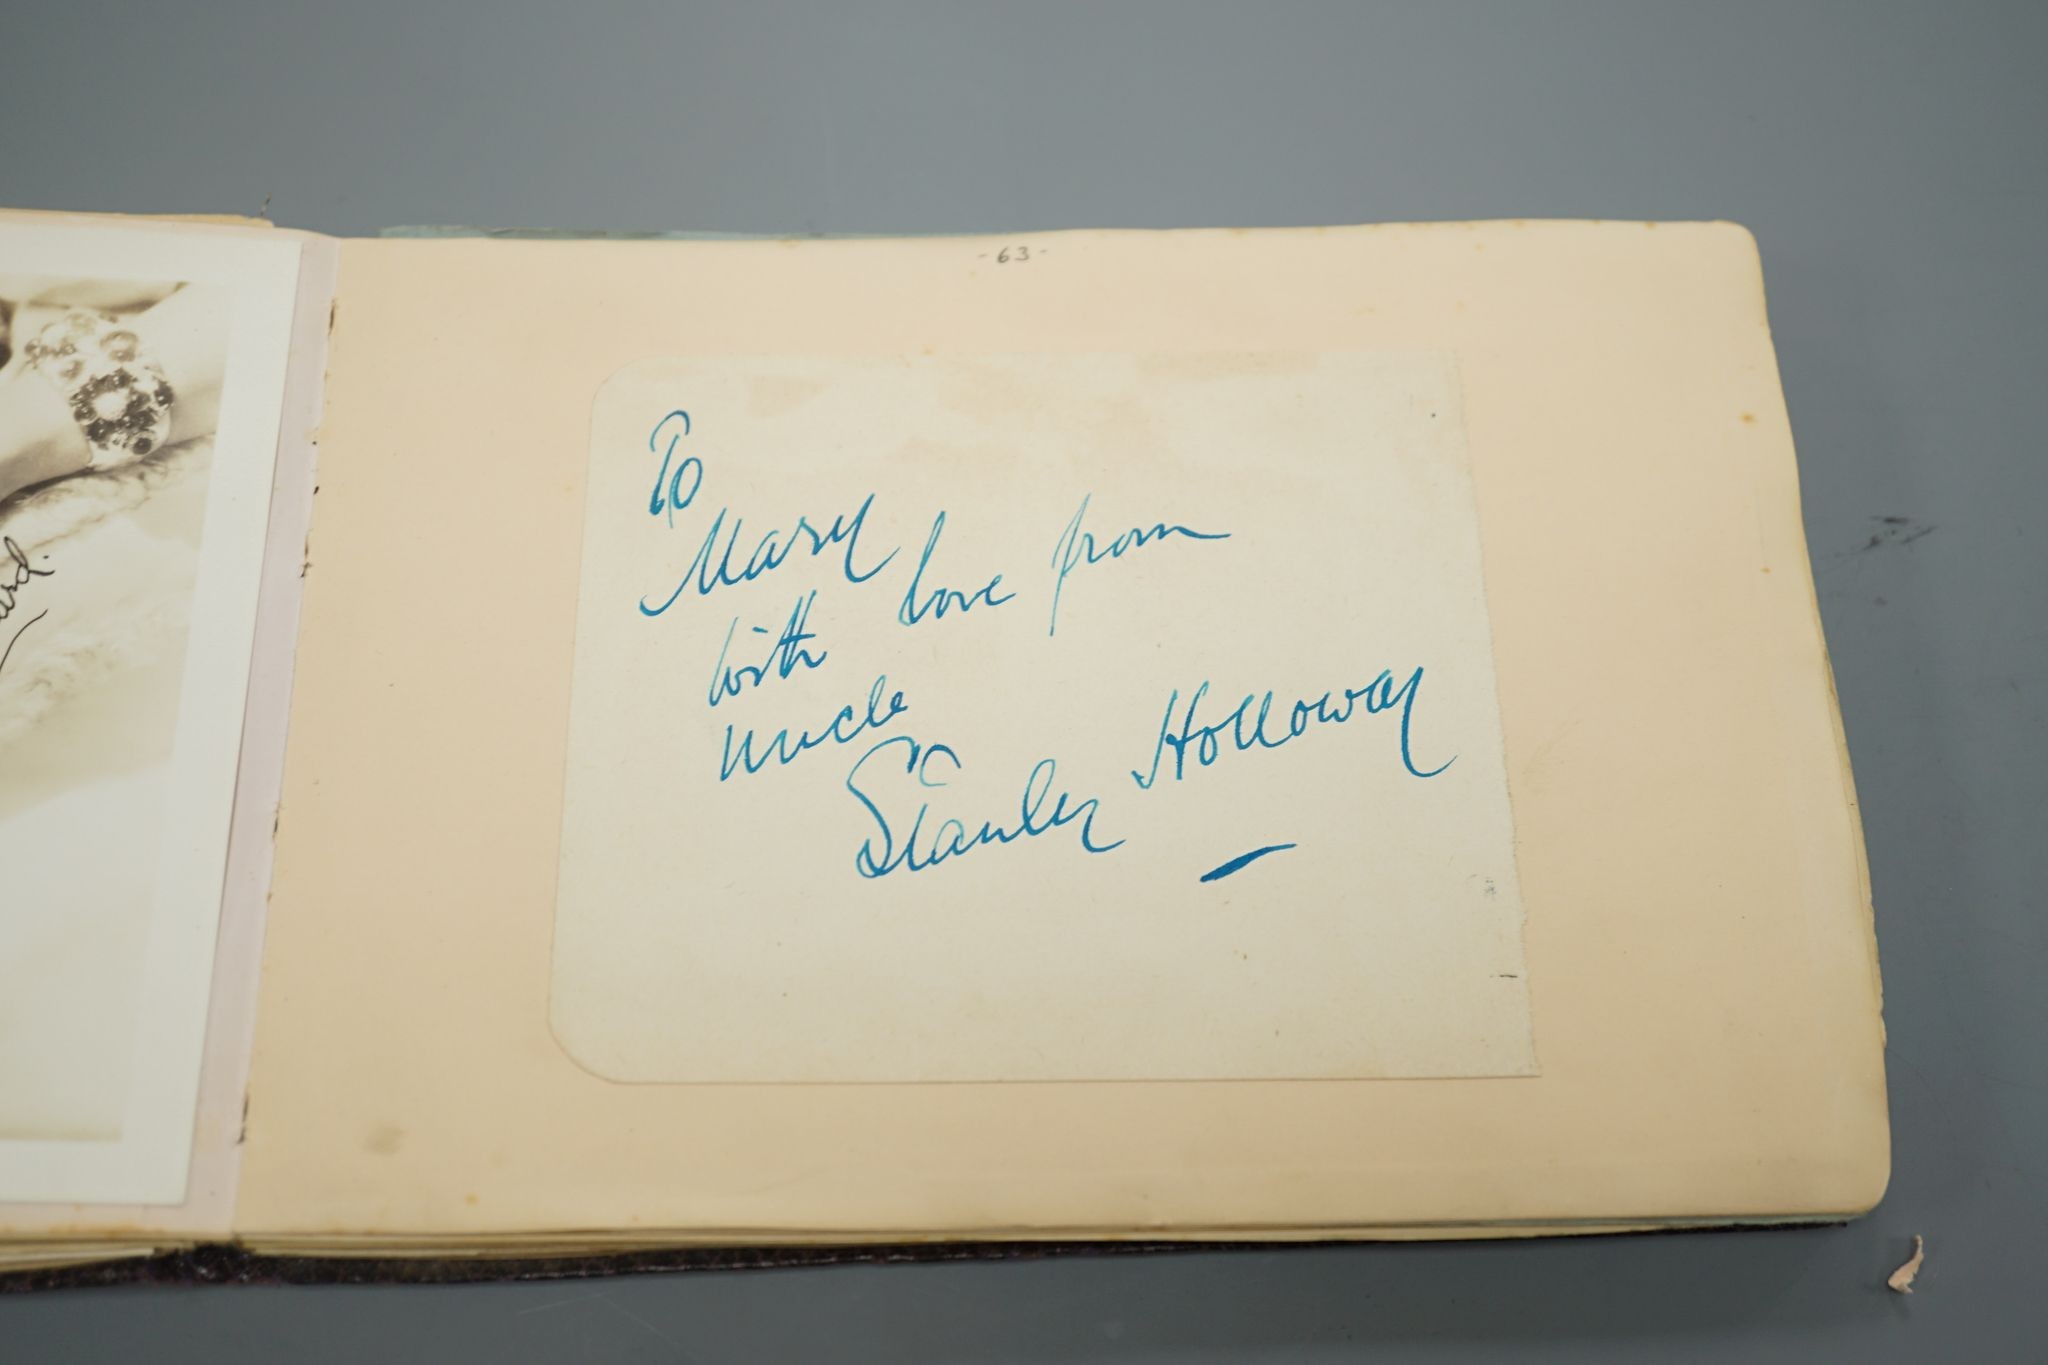 - 63 -
To
Mary
with love from
Uncle
Stanley Holloway